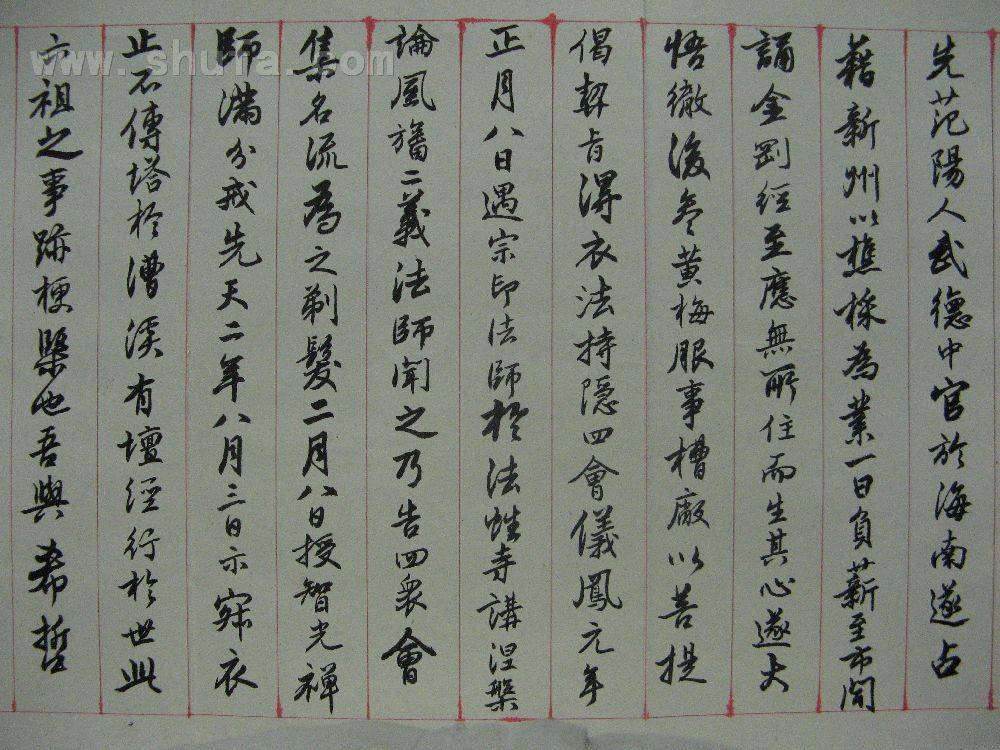 先范陽人武德中官於海南遂占
藉新州以樵採為業一日負薪至市聞
誦金剛經至應無所住而生其心遂大
悟徹後參黃梅服事槽廠以菩提
偈契旨得衣法持隱四會儀鳳元年
正月八日遇宗印法師於法性寺講涅槃
論風旛二義法師聞之乃告四眾會
集名流為之剃髮二月八日授智光禪
師滿分戒先天二年八月三日示寂衣
止不傳塔於漕溪有壇經行於世此
六祖之事跡梗槩也吾與希哲
www.shufa.com